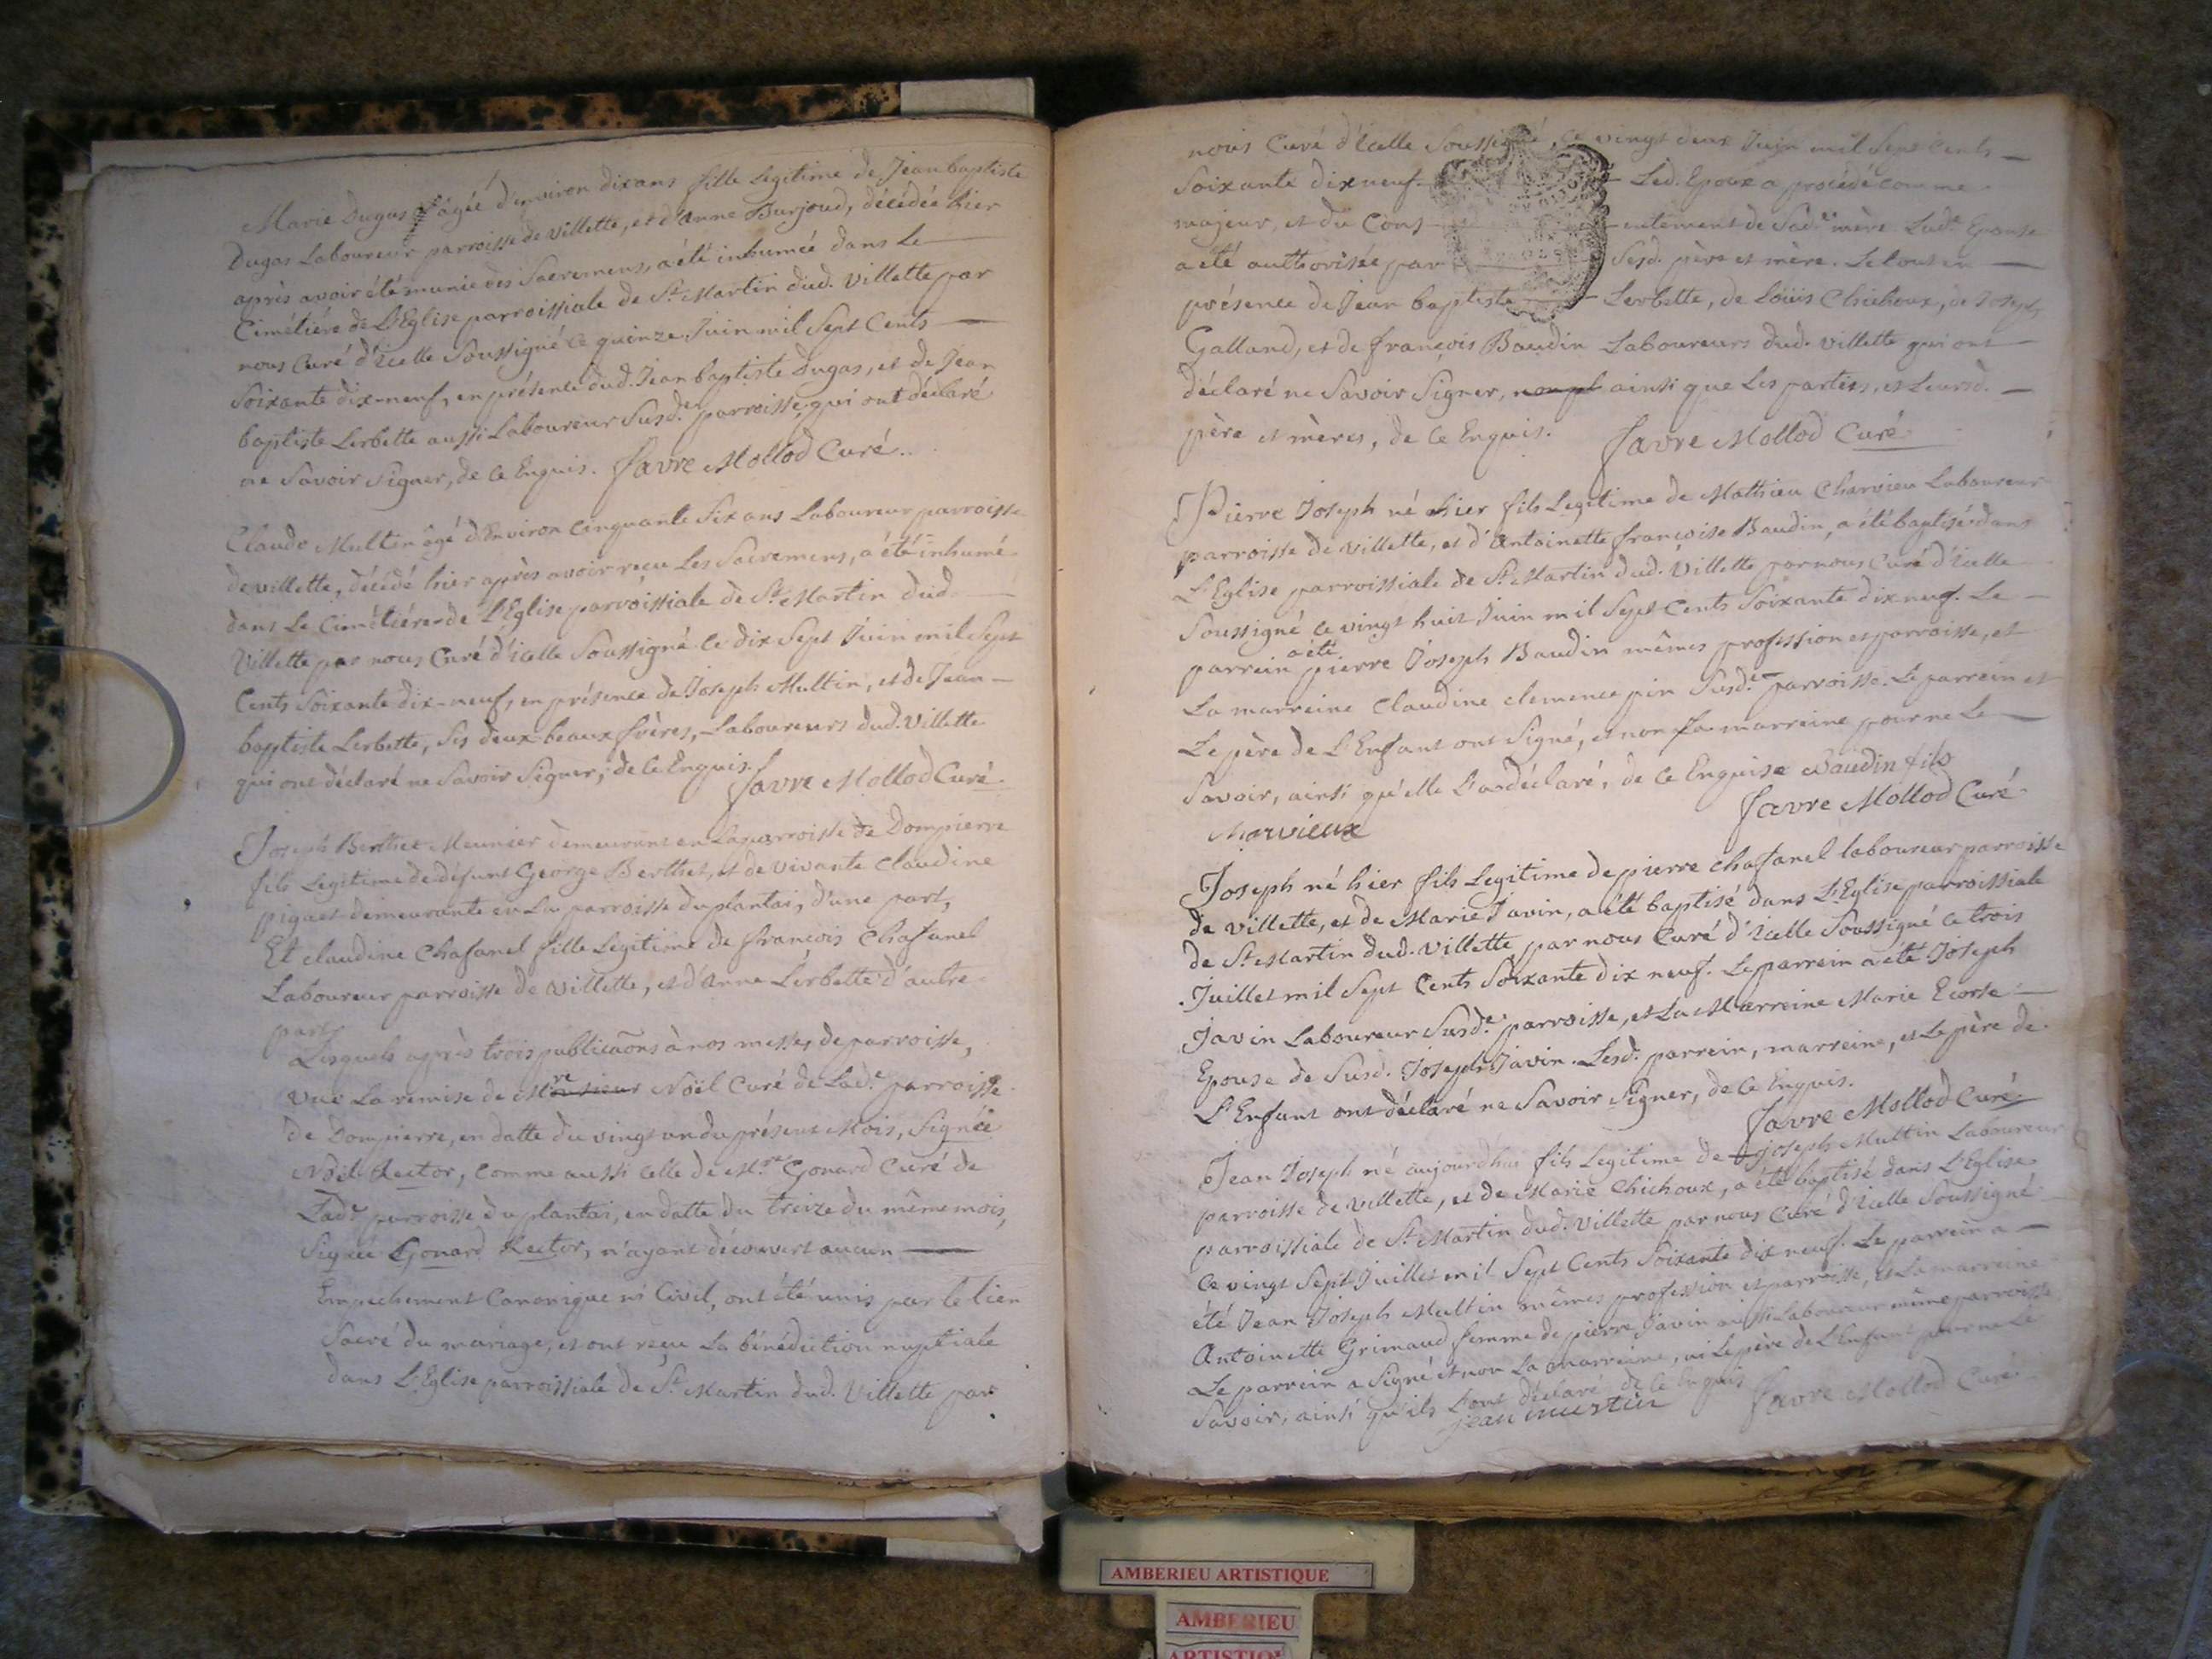 Marie Dugas âgée d'environ dix ans fille Legitime de Jean baptiste
Dugas Laboureur parroisse de villette, et d'anne Burjoud, décédée hier
après avoir été munie des Sacremens, a été inhumée dans Le
Cimétiére de L'Eglise parroissiale de St. Martin dud. villette par
nous Curé d'icelle Soussigné ce quinze Juin mil Sept Cents
Soixante dix-neuf, en présence dud. Jean baptiste Dugas, et de Jean
baptiste Lerbette aussi Laboureur Susde. parroisse, qui ont déclaré
ne Savoir Signer, de ce Enquis. Favre Mollod Curé.
Claude Multin âgé d'Environ Cinquante Six ans Laboureur parroisse
de villette, décédé hier après avoir reçu Les Sacremens, a été inhumé
dans Le Cimétiére de L'Eglise parroissiale de St. Martin dud.
Villette par nous Curé d'icelle Soussigné ce dix Sept Juin mil Sept
Cents Soixante dix-neuf, en présence de Joseph Multin, et de Jean
baptiste Lerbette, Ses deux beaux frères, Laboureurs dud. villette
qui ont déclaré ne Savoir Signer, de ce Enquis.
Favre Mollod Curé
Joseph Berthet Meunier demeurant en La parroisse de Dompierre
fils Legitime de défunt George Berthet, et de vivante Claudine
piquet demeurante en La parroisse du plantai, d'une part,
Et claudine Chafanel fille Legitime de françois Chafanel
Laboureur parroisse de Villette, et d'Anne Lerbette d'autre
part,
Lesquels après trois publicaõns à nos messes de parroisse,
vue La remise de Mre Noël Curé de Lade. parroisse
de Dompierre, en datte du vingt un du présent Mois, Signée
Noël Rector, comme aussi celle de Mre Gonard Curé de
Lade. parroisse du plantai, en datte du treize du même mois,
Signée Gonard Rector, n'ayant découvert aucun
Empechement Canonique ni Civil, ont été unis par le lien
Sacré du mariage, et ont reçu La bénédiction nuptiale
dans L'Eglise parroissiale de St. Martin dud. Villette par
nous Curé d'icelle Soussigné, ce vingt deux Juin mil Sept Cents
Soixante dix neuf. Led. Epoux a procédé comme
majeur, et du Consentement de Sade. mère. Lade. Epouse
a été authorisée par Sesd. père et mère. Le tout en
présence de Jean baptiste Lerbette, de Loüis Chichoux, de Joseph
Galland, et de françois Baudin Laboureurs dud. villette qui ont
déclaré ne Savoir Signer, ainsi que Les parties, et Leursd.
père et mères, de ce Enquis. Favre Mollod Curé
Pierre Joseph né hier fils Legitime de Mathieu Charvieu Laboureur
parroisse de villette, et d'Antoinette françoise Baudin, a été baptisé dans
L'Eglise parroissiale de St. Martin dud. Villette par nous Curé d'icelle
Soussigné ce vingt huit Juin mil Sept Cents Soixante dix neuf. Le
parrein a été pierre Joseph Baudin mêmes profession et parroisse, et
La marreine Claudine clemence pin Susde. parroisse. Le parrein et
Le père de L'Enfant ont Signé, et non La marreine pour ne Le
Savoir, ainsi qu'elle L'a déclaré, de ce Enquise Baudin fils
Favre Mollod Curé
Joseph né hier fils Legitime de pierre chafanel laboureur parroisse
de villette, et de Marie Javin, a été baptisé dans L'Eglise parroissiale
de St. Martin dud. villette par nous Curé d'icelle Soussigné ce trois
Juillet mil Sept Cents Soixante dix neuf. Le parrein a été Joseph
Javin Laboureur Susde. parroisse, et La Marreine Marie Ecorse
Epouse de Susd. Joseph Javin. Lesd. parrein, marreine, et Le père de
L'Enfant ont déclaré ne Savoir Signer, de ce Enquis.
Favre Mollod Curé
Jean Joseph né aujourd'hui fils Legitime de joseph Multin Laboureur
parroisse de villette, et de Marie Chichoux, a été baptisé dans L'Eglise
parroissiale de St. Martin dud. villette par nous Curé d'icelle Soussigné
ce vingt Sept Juillet mil Sept Cents Soixante dix neuf. Le parrein a
été Jean Joseph Multin mêmes profession et parroisse, et La marreine
Antoinette Grimaud femme de pierre Javin aussi Laboureur même parroisse
Le parrein a Signé et non La marreine, ni Le père de L'Enfant pour ne Le
Savoir, ainsi qu'ils L'ont déclaré de ce Enquis Favre Mollod Curé
AMBERIEU ARTISTIQUE
AMBERIEU
ARTISTIQUE